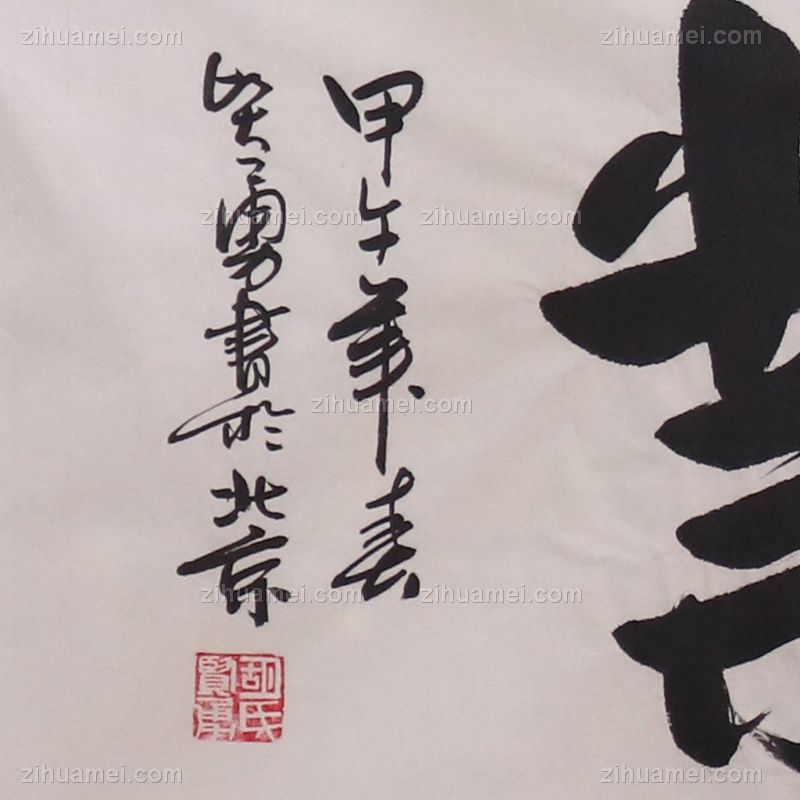 甲午年春
贤勇書於北京
胡氏
賢
zihuamei.com zihuamei.com zihuamei.com
zihuamei.com zihuamei.com
zihuamei.com
zihuamei.com zihuamei.com
zihuamei.com zihuamei.com zihuamei.com